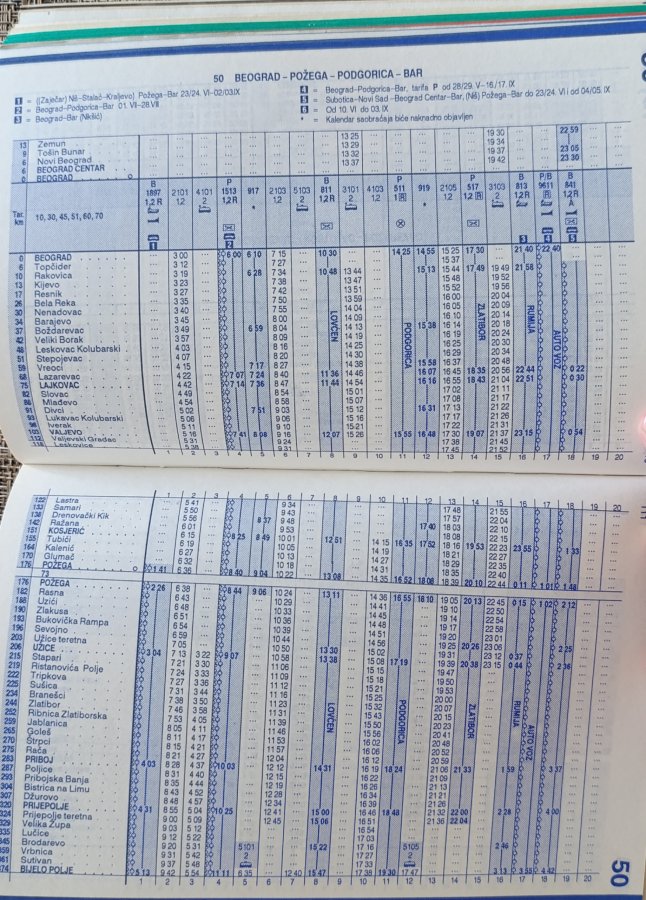 50 BEOGRAD – POŽEGA – PODGORICA – BAR
1 = ((Zaječar) Niš–Stalać–Kraljevo) Požega–Bar 23/24. VI–02/03.IX
2 = Beograd–Podgorica–Bar 01. VII–28.VIII
3 = Beograd–Bar (Nikšić)
4 = Beograd–Podgorica–Bar, tarifa P od 28/29. V–16/17. IX
5 = Subotica–Novi Sad –Beograd Centar–Bar, (Niš) Požega–Bar do 23/24. VI i od 04/05. IX
6 = Od 10. VI do 03. IX
* = Kalendar saobraćaja biće naknadno objavljen
13 Zemun 13 25 19 30 22 59
9 Tošin Bunar 13 29 19 34
6 Novi Beograd 13 32 19 37 23 05
6 BEOGRAD CENTAR 13 37 19 42 23 30
0 BEOGRAD o
Tar. km 10, 30, 45, 51, 60, 70
B P B P P B P/B B
1897 2101 4101 1513 917 2103 5103 811 3101 4103 511 919 2105 517 3103 813 9611 841
1,2 R 1,2 2 1,2 R * 1,2 2 1,2 R 2 1,2 1 R * 1,2 1,2 R 2 1,2 R R 1,2 R
1 2 3 4 5
0 BEOGRAD 3 00 6 00 6 10 7 15 10 30 14 25 14 55 15 25 17 30 21 40 22 40
6 Topčider 3 12 7 27 15 37
10 Rakovica 3 19 6 28 7 34 10 48 13 44 15 13 15 44 17 49 19 49 21 58
13 Kijevo 3 23 7 38 13 47 15 48 19 52
17 Resnik 3 27 7 42 13 51 15 52 19 56
26 Bela Reka 3 35 7 50 13 59 15 56 20 00
30 Nenadovac 3 40 7 55 14 04 16 05 20 09
34 Barajevo 3 45 8 00 14 09 16 10 20 14
37 Boždarevac 3 49 6 59 8 04 14 13 15 38 16 14 20 18
42 Veliki Borak 3 57 8 09 14 19 16 20 20 24
48 Leskovac Kolubarski 4 03 8 16 14 25 16 25 20 30
51 Stepojevac 4 07 8 20 14 30 16 29 20 34
59 Vreoci 4 15 7 17 8 27 14 38 15 58 16 37 20 48
68 Lazarevac 4 22 7 07 7 24 8 40 11 36 14 46 16 07 16 45 18 35 20 56 22 44 0 22
75 LAJKOVAC 4 42 7 14 7 36 8 47 11 44 14 54 16 16 16 55 18 43 21 04 22 51 0 30
82 Slovac 4 49 8 54 15 01 17 02 21 11
86 Mlađevo 4 54 8 58 15 07 17 08 21 17
91 Divci 5 02 7 51 9 03 15 12 16 31 17 13 21 22
93 Lukavac Kolubarski 5 06 9 06 15 16 17 17 21 26
98 Iverak 5 11 9 10 15 20 17 22 21 31
103 VALJEVO 5 16 7 41 8 08 9 16 12 07 15 26 15 55 16 48 17 30 19 07 21 37 23 15 0 54
112 Valjevski Gradac 5 31 9 24 17 38 21 45
118 Leskovica 5 38 9 31 17 45 21 52
LOVĆEN PODGORICA ZLATIBOR RUMIJA AUTO VOZ
1 2 3 4 5 6 7 8 9 10 11 12 13 14 15 16 17 18 19 20
1 2 3 4 5 6 7 8 9 10 11 12 13 14 15 16 17 18 19 20
122 Lastra 5 41 9 34 17 48 21 55
133 Samari 5 50 9 43 17 57 22 04
138 Drenovački Kik 5 56 9 48 18 03 22 10
142 Ražana 6 01 8 37 9 53 17 40 18 08 22 15
151 KOSJERIĆ 6 15 8 25 8 49 10 01 12 51 14 15 16 35 17 52 18 16 19 53 22 23 23 55 1 33
155 Tubići 6 19 10 05 14 19 18 21 22 27
164 Kalenić 6 27 10 13 14 27 18 29 22 35
170 Glumač 6 32 10 18 14 31 18 35 22 40
176 POŽEGA o 1 41 6 36 8 40 9 04 10 22 13 08 14 35 16 52 18 08 18 39 20 10 22 44 0 11 1 01 1 48
73
176 POŽEGA 2 26 6 38 8 44 9 06 10 24 13 11 14 36 16 55 18 10 19 05 20 13 22 45 0 15 1 02 2 12
182 Rasna 6 43 10 29 14 41 19 10 22 50
188 Uzići 6 48 10 33 14 45 19 14 22 54
190 Zlakusa 6 51 10 36 14 48 19 17 22 58
193 Bukovička Rampa 6 54 10 39 14 51 19 20 23 01
196 Sevojno 6 59 10 44 14 56 19 25 20 26 23 06
203 Užice teretna 7 05 10 50 13 30 15 02 19 31 23 12 0 37 2 25
206 UŽICE 3 04 7 13 3 22 9 07 10 58 13 38 15 08 17 19 19 39 20 38 23 15 0 44 2 36
215 Stapari 7 21 3 30 11 06 15 16 19 47
219 Ristanovića Polje 7 24 3 33 11 09 15 18 19 50
222 Tripkova 7 27 3 36 11 12 15 21 19 53
225 Sušica 7 31 3 44 11 16 15 25 20 00
234 Branešci 7 38 3 50 11 23 15 32 20 07
244 Zlatibor 7 46 3 58 11 31 15 43 20 15
252 Ribnica Zlatiborska 7 53 4 05 11 39 15 50 20 41
259 Jablanica 8 05 4 11 11 46 15 56 20 48
265 Goleš 8 11 4 17 11 53 16 02 20 52
270 Štrpci 8 15 4 21 11 57 16 06 20 59
275 Rača 8 21 4 27 12 04 16 12
283 PRIBOJ 4 03 8 28 4 37 10 03 12 12 14 31 16 19 18 24 21 06 21 33 1 59 3 37
287 Poljice 8 31 4 40 12 15 16 22 21 09
293 Pribojska Banja 8 35 4 44 12 19 16 26 21 13
304 Bistrica na Limu 8 43 4 52 12 28 16 34 21 21
307 Džurovo 8 48 4 57 12 34 16 39 21 26
320 PRIJEPOLJE 4 31 8 55 5 04 10 25 12 41 15 00 16 46 18 48 21 32 22 00 2 28 4 00
324 Prijepolje teretna 9 00 5 09 12 45 15 06 16 51 21 36 22 04
329 Velika Župa 9 03 5 12 16 54
335 Lučice 9 12 5 22 17 03
345 Brodarevo 9 20 5 31 5101 15 22 17 16 5105 2 46
359 Vrbnica 9 31 5 42 2 17 27 2
361 Sutivan 9 37 5 48 17 33
374 BIJELO POLJE 5 13 9 42 5 54 11 11 6 35 12 40 15 47 17 38 19 30 17 47 3 13 3 55 4 42
LOVĆEN PODGORICA ZLATIBOR RUMIJA AUTO VOZ
1 2 3 4 5 6 7 8 9 10 11 12 13 14 15 16 17 18 19 20
50